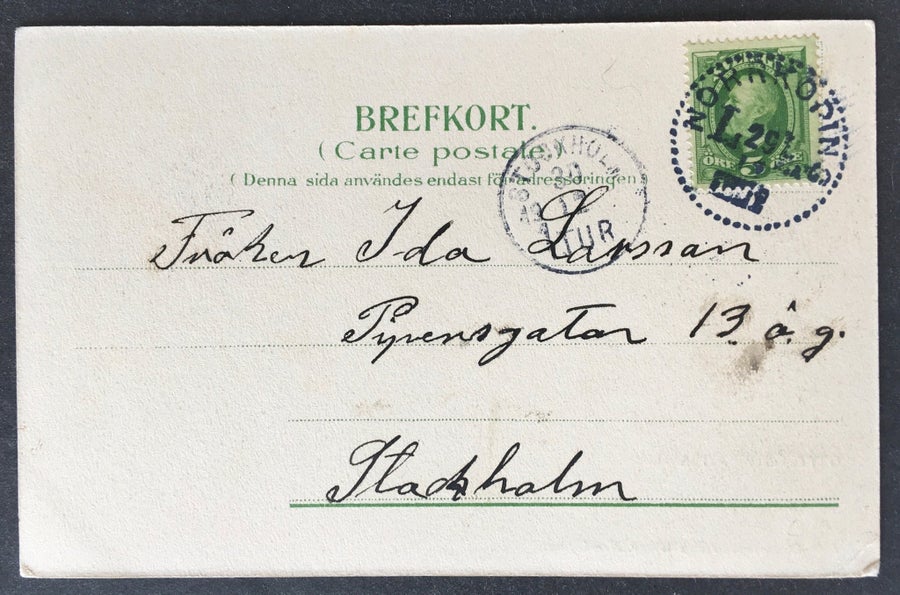 BREFKORT.
(Carte postale
(Denna sida användes endast för adresseringen)
NORRKÖPING
L
29 1
ÖRE 5
STOCKHOLM
30
1 TUR
Fröken Ida Larsson
13 å. g.
Stockholm